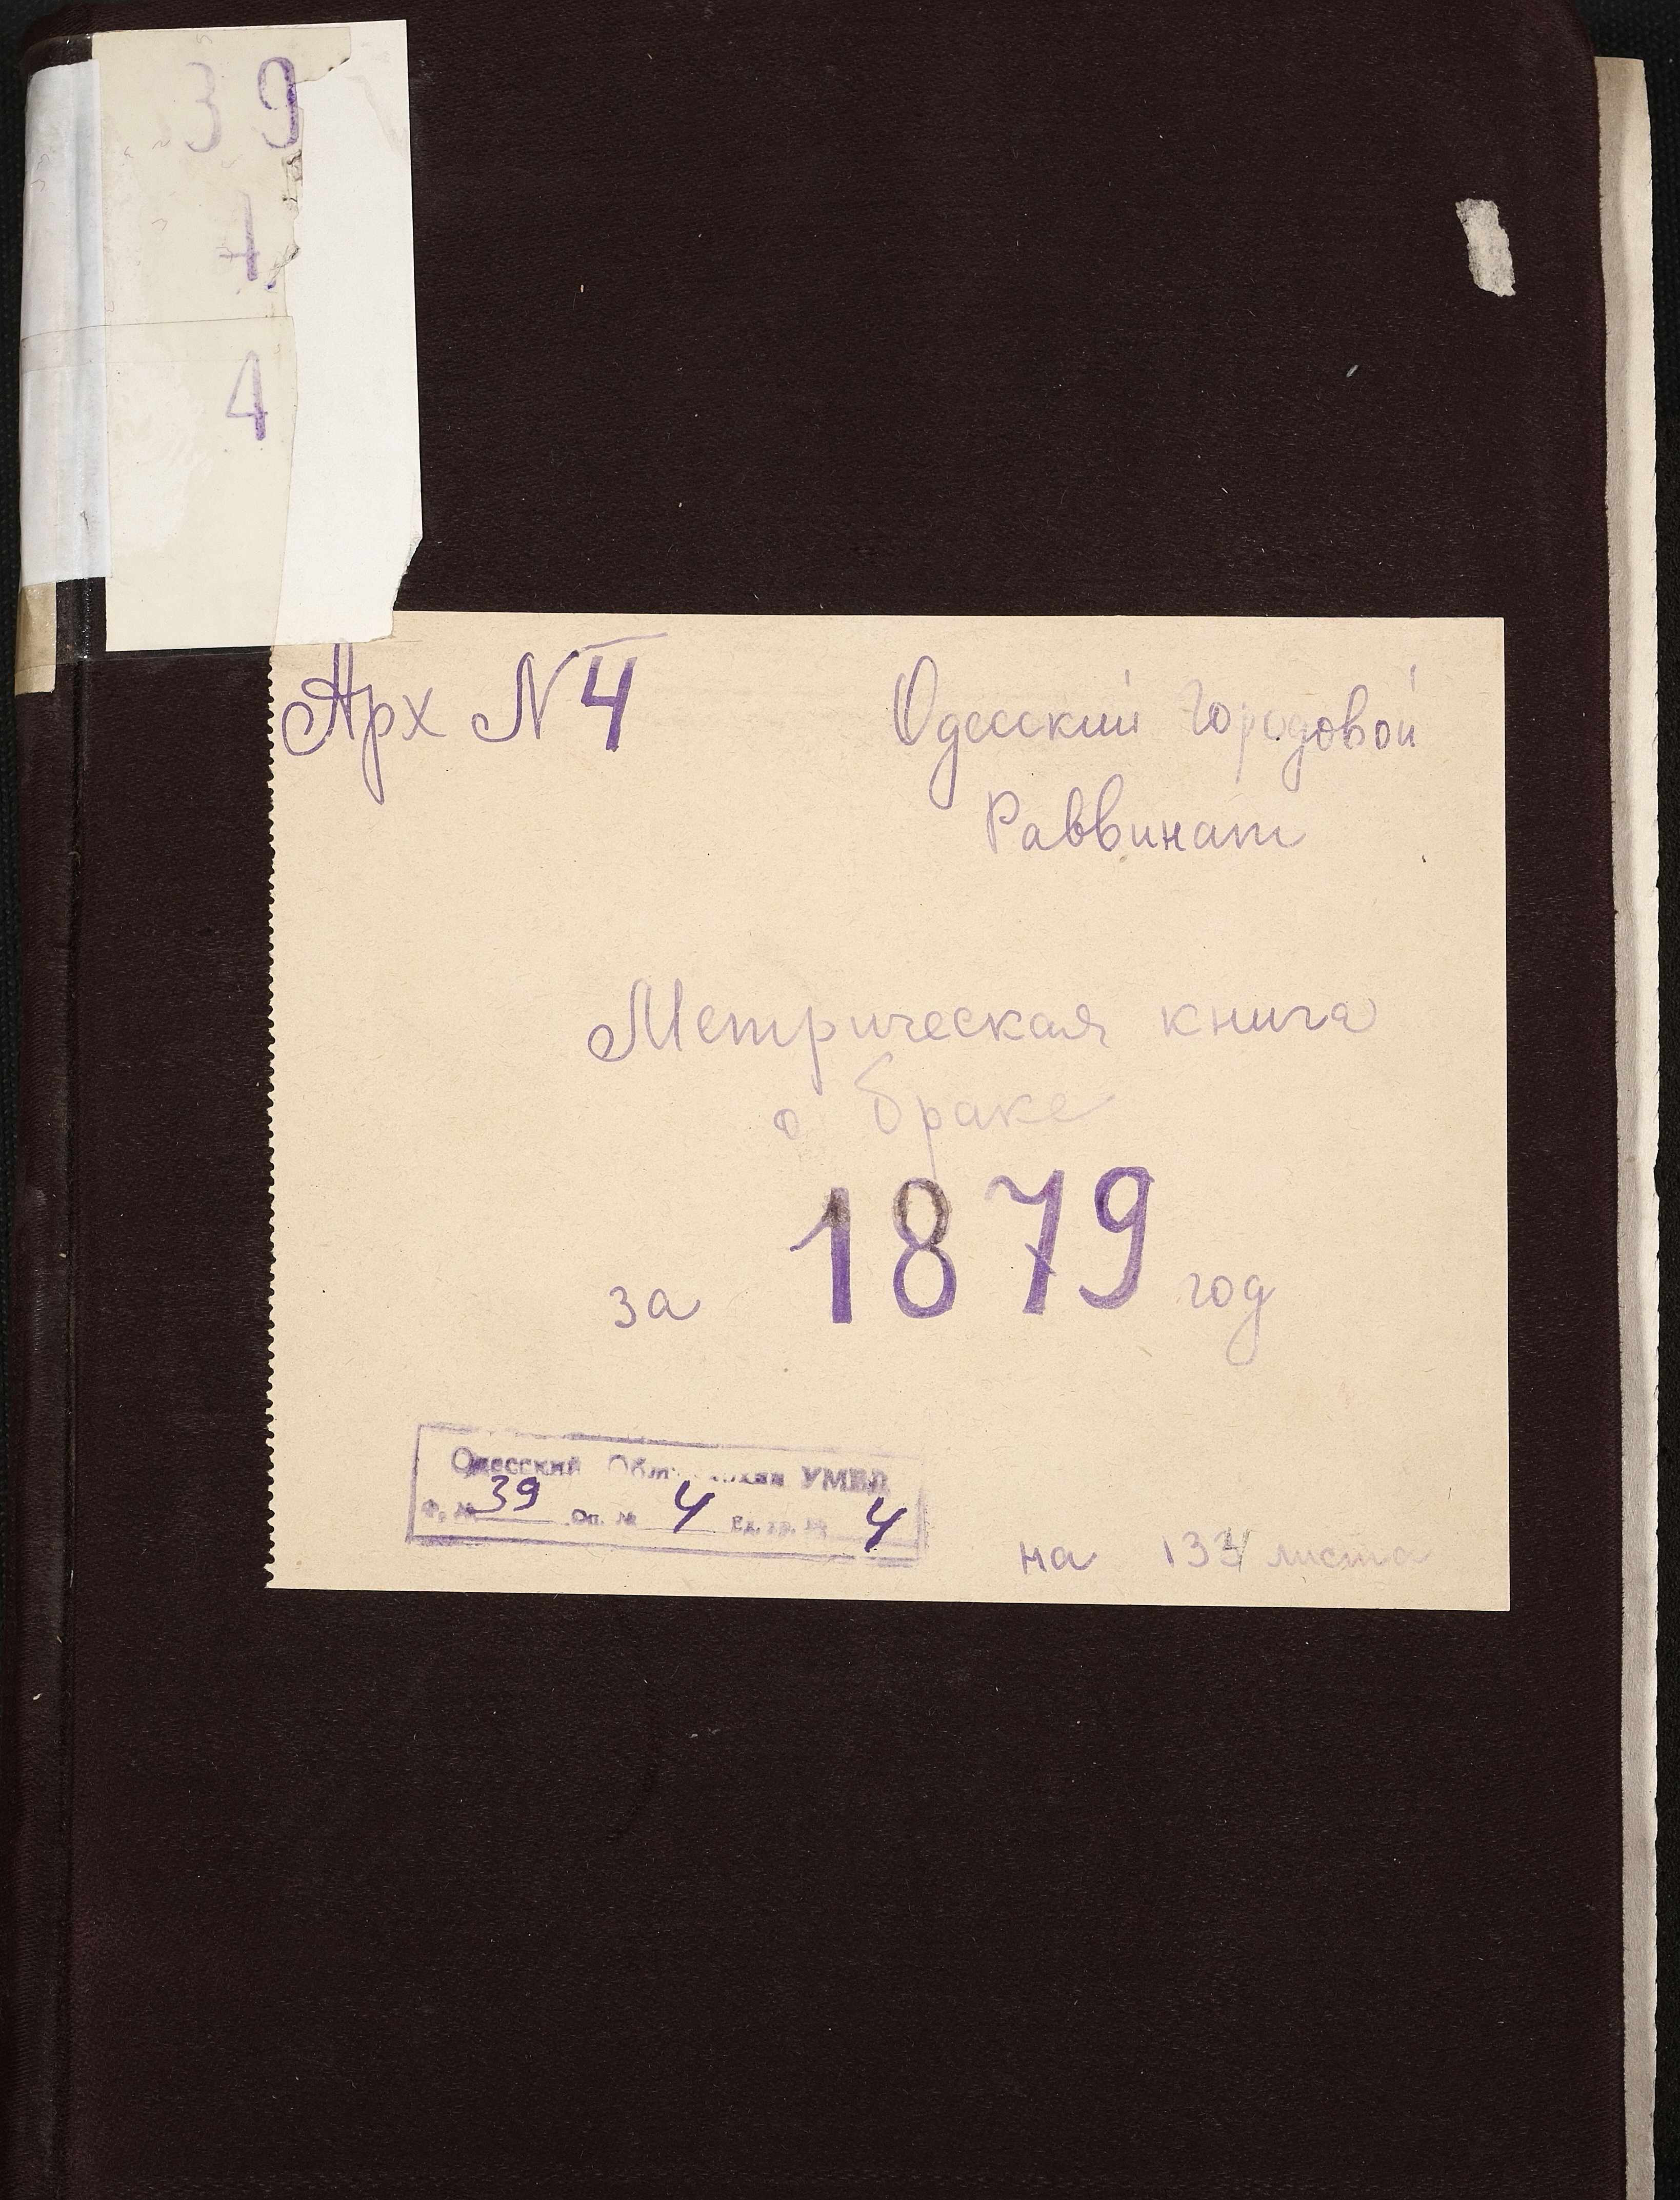 39
4
4
Арх N 4
Одесский Городовой
Раввинат
Метрическая книга
о браке
за 1879 год
Одесский УМВД
Ф. № 39 Оп. № 4 Ед. хр. № 4
на листа